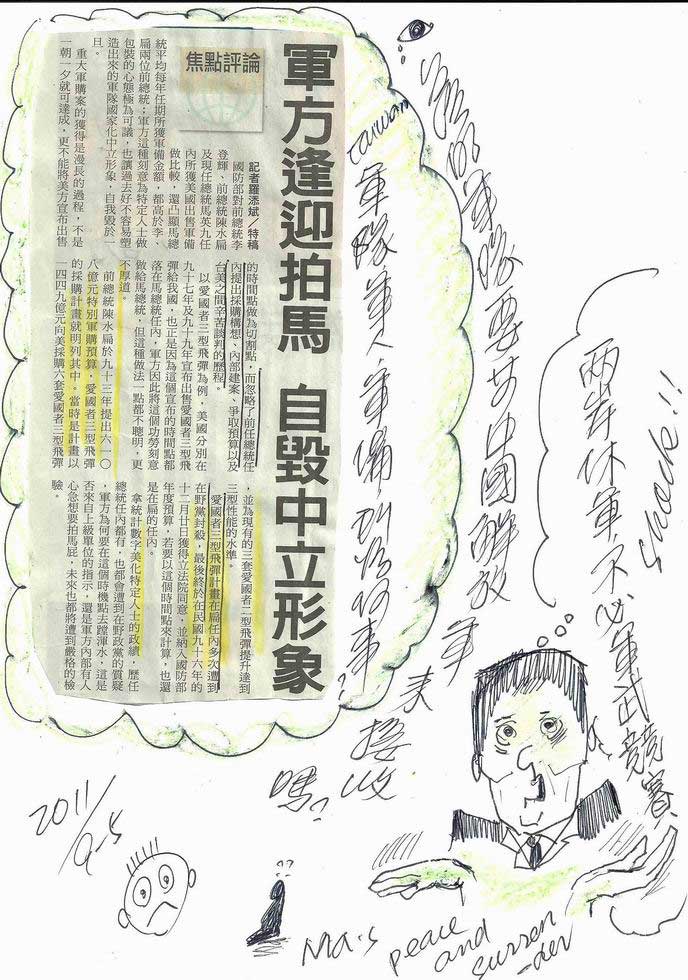 check!!
兩岸休軍不必軍武競賽
軍隊要
中國解放軍
來接收
嗎?
Taiwan
軍隊軍人軍備
軍方逢迎拍馬 自毀中立形象
焦點評論
記者羅添斌／特稿
國防部對前總統李
登輝、前總統陳水扁
及現任總統馬英九任
內所獲美國出售軍備
做比較，還凸顯馬總
統平均每年任期所獲軍備金額，都高於李、
扁兩位前總統；軍方這種刻意為特定人士做
包裝的心態極為可議，也讓過去好不容易塑
造出來的軍隊國家化中立形象，自我毀於一
旦。
重大軍購案的獲得是漫長的過程，不是
一朝一夕就可達成，更不能將美方宣布出售
的時間點做為切割點，而忽略了前任總統任
內提出採購構想、內部建案、爭取預算以及
台美之間辛苦談判的歷程。
以愛國者三型飛彈為例，美國分別在
九十七年及九十九年宣布出售愛國者三型飛
彈給我國，也正是因為這個宣布的時間點都
落在馬總統任內，軍方因此將這個功勞刻意
做給馬總統，但這種做法一點都不聰明，更
不厚道。
前總統陳水扁於九十三年提出六一〇
八億元特別軍購預算，愛國者三型飛彈
的採購計畫就明列其中。當時是計畫以
一四四九億元向美採購六套愛國者三型飛彈
，並為現有的三套愛國者二型飛彈提升達到
三型性能的水準。
愛國者三型飛彈計畫在扁任內多次遭到
在野黨封殺，最後終於在民國九十六年的
十二月廿日獲得立法院同意，並納入國防部
年度預算，若要以這個時間點來計算，也還
是在扁的任內。
拿統計數字美化特定人士的政績，歷任
總統任內都有，也都會遭到在野政黨的質疑
，軍方為何要在這個時機點去蹚渾水，這是
否來自上級單位的指示，還是軍方內部有人
心急想要拍馬屁，未來也都將遭到嚴格的檢
驗。
2011/9-5
Ma's peace and surren-der